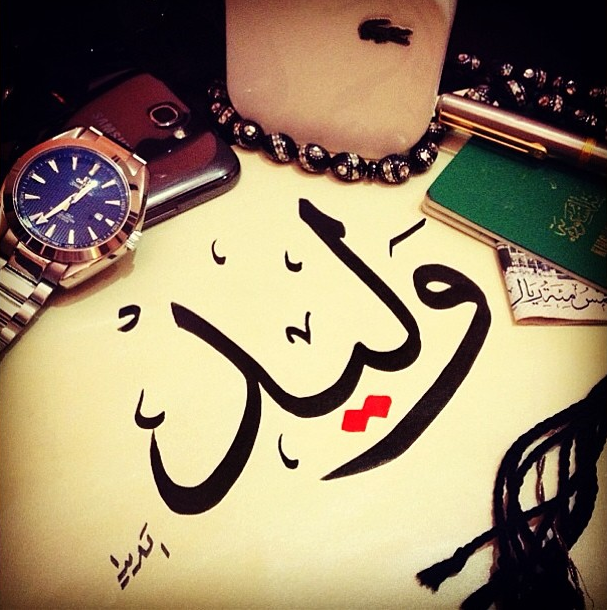 SAMSUNG
خمس مئة ريال
وليد